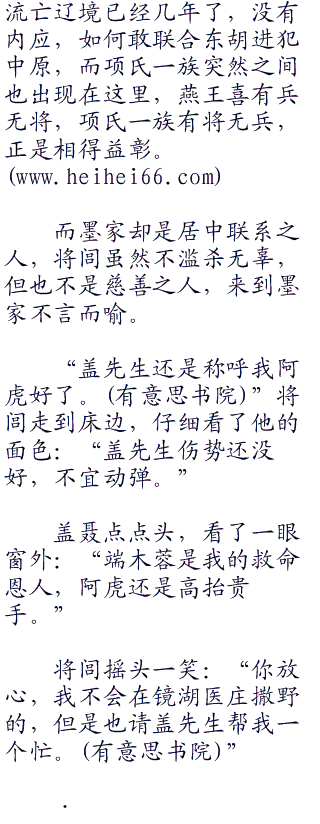 流亡辽境已经几年了，没有
内应，如何敢联合东胡进犯
中原，而项氏一族突然之间
也出现在这里，燕王喜有兵
无将，项氏一族有将无兵，
正是相得益彰。
(www.heihei66.com)
而墨家却是居中联系之
人，将闾虽然不滥杀无辜，
但也不是慈善之人，来到墨
家不言而喻。
“盖先生还是称呼我阿
虎好了。(有意思书院)”将
闾走到床边，仔细看了他的
面色：“盖先生伤势还没
好，不宜动弹。”
盖聂点点头，看了一眼
窗外：“端木蓉是我的救命
恩人，阿虎还是高抬贵
手。”
将闾摇头一笑：“你放
心，我不会在镜湖医庄撒野
的，但是也请盖先生帮我一
个忙。(有意思书院)”
.